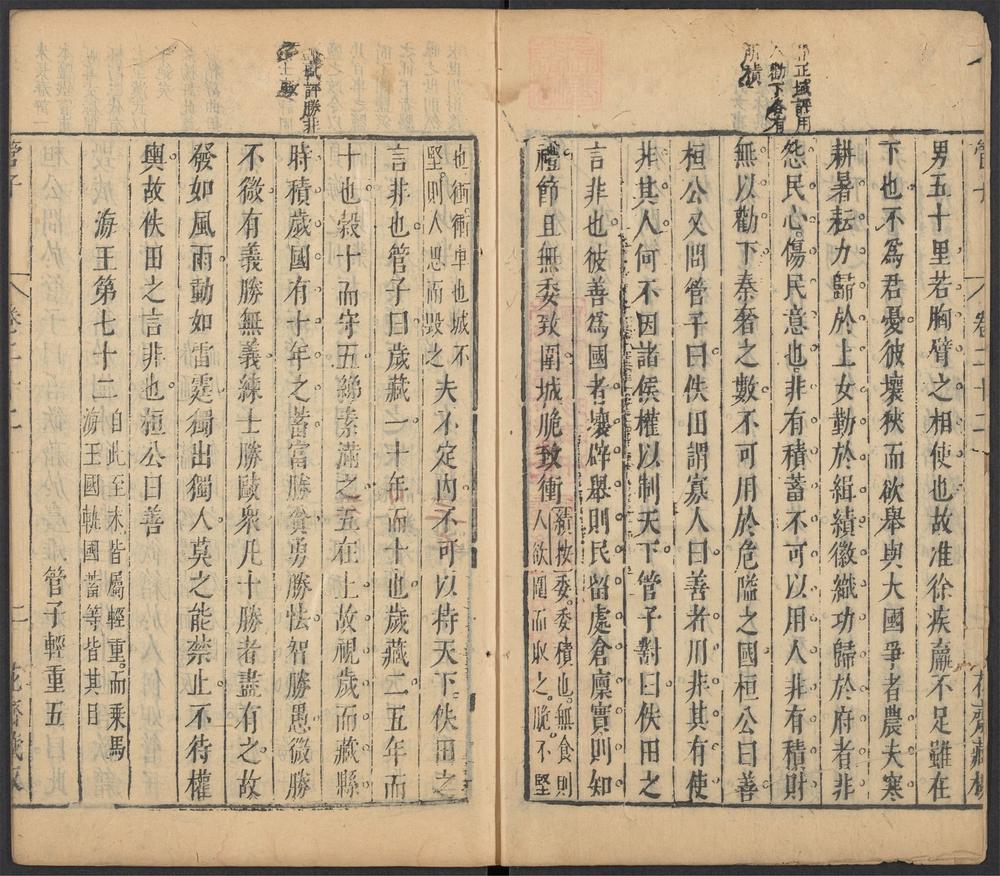 正域評用
勸下各有
男五十里若胸臂之相使也故准徐疾羸不足雖在
下也不為君憂彼壤狹而欲舉與大國爭者農夫寒
耕暑耘力歸於上女勤於緝績徽織功歸於府者非
怨民心傷民意也非有積蓄不可以用人非有積財
無以勸下泰奢之數不可用於危隘之國桓公曰善
桓公又問管子曰佚田謂寡人曰善者川非其有使
非其人何不因諸侯權以制天下管子對曰佚田之
言非也彼善為國者壤辟舉則民留處倉廩實則知
禮節且無委致圍城脆致衝
績按委委積也無食則
人欲圍而取之脆不堅
評勝非
也衝衝車也城不
堅則人思而毀之
夫不定內不可以持天下佚田之
言非也管子曰歲藏一十年而十也歲藏二五年而
十也穀十而守五綈素滿之五在上故視歲而藏縣
時積歲國有十年之蓄富勝貧勇勝怯智勝愚微勝
不微有義勝無義練士勝敺衆凡十勝者盡有之故
發如風雨動如雷霆獨出獨人莫之能禁止不待權
輿故佚田之言非也桓公曰善
海王第七十二
自此至末皆屬輕重而乘馬
海王國軌國蓄等皆其目
管子輕重五